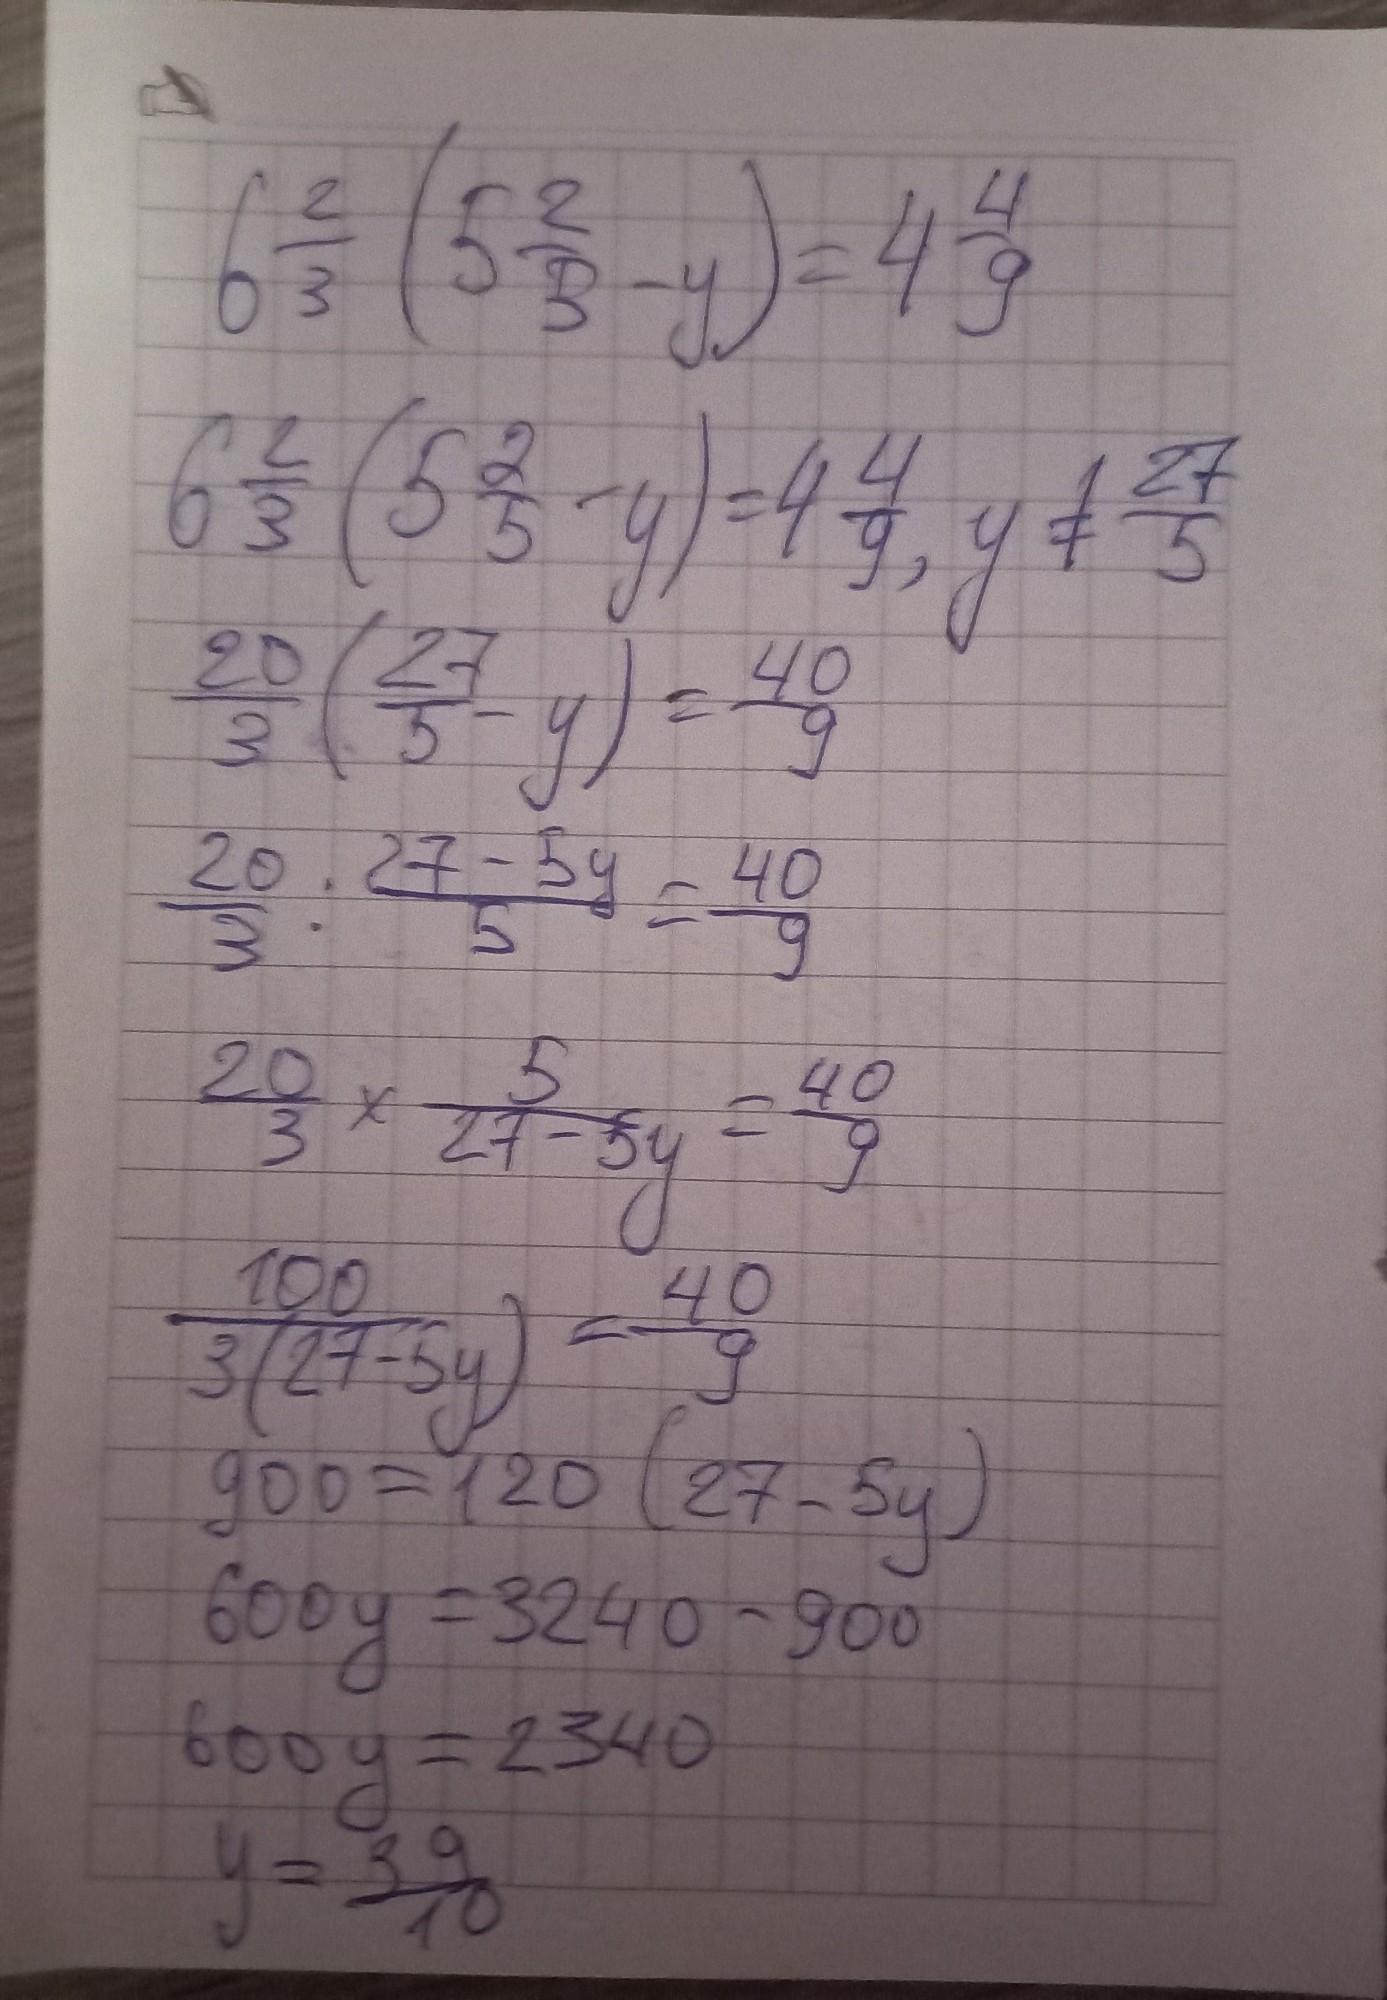 6 2/3 (5 2/5 - y) = 4 4/9
6 2/3 (5 2/5 - y) = 4 4/9, y ≠ 27/5
20/3 (27/5 - y) = 40/9
20/3 : (27 - 5y)/5 = 40/9
20/3 × 5/(27 - 5y) = 40/9
100/(3(27 - 5y)) = 40/9
900 = 120 (27 - 5y)
600y = 3240 - 900
600y = 2340
y = 39/10